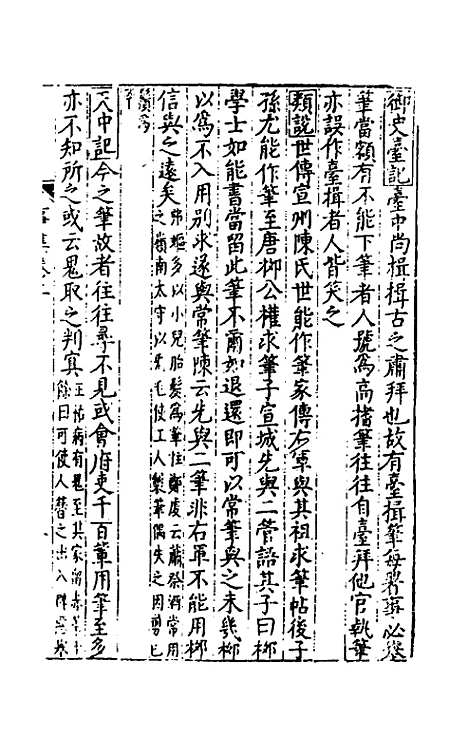 御史臺記臺中尚揖揖古之肅拜也故有臺揖筆每署事必舉
筆當額有不能下筆者人號爲高搘筆往往自臺拜他官執筆
亦誤作臺揖者人皆笑之
類說世傳宣州陳氏世能作筆家傳右軍與其祖求筆帖後子
孫尤能作筆至唐柳公權求筆于宣城先與二管語其子曰柳
學士如能書當留此筆不爾如退還即可以常筆與之未幾柳
以爲不入用別求遂與常筆陳云先與二筆非右軍不能用柳
信與之遠矣
多以小兒胎髮爲筆
云蕭祭酒常用
之嶺南太守以兔毛使工人製筆偶失之因剪己
鬚爲
今之筆故者往往尋不見或會府吏千百輩用筆至多
亦不知所之或云鬼取之判冥
王祐病有鬼至其家留赤筆十
餘曰可使人簪之出入